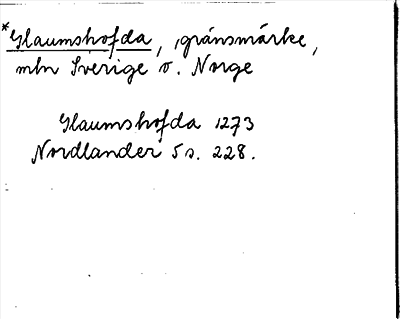 *Glaumshofda, gränsmärke,
mln Sverige o. Norge
Glaumshofda 1273
Nordlander 5 s. 228.